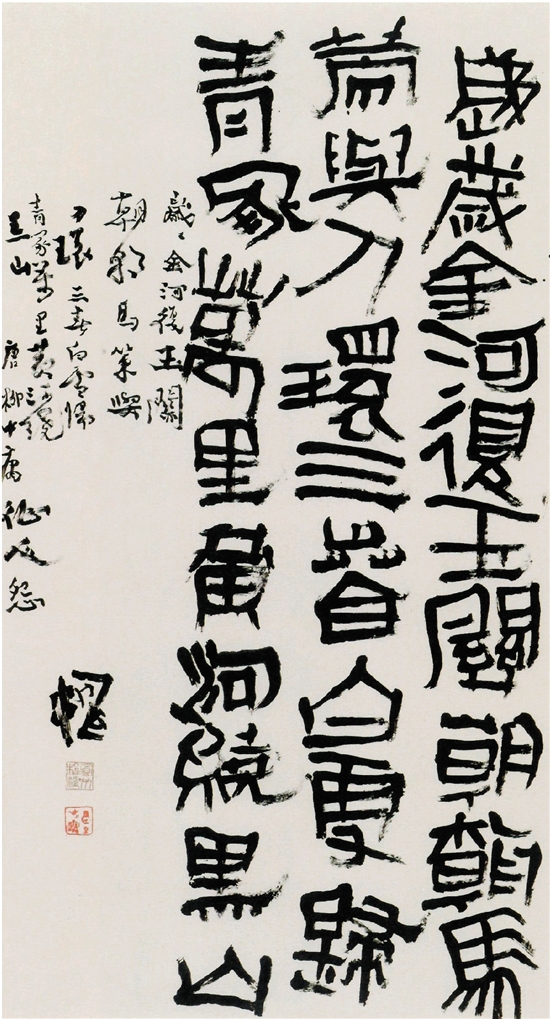 歲歲金河復玉關朝朝馬
策與刀環三春白雪歸
青冢萬里黃河繞黑山
歲〻金河復玉關
朝朝馬策與
刀環三春白雪歸
青冢萬里黃河繞
黑山 唐柳中庸征人怨